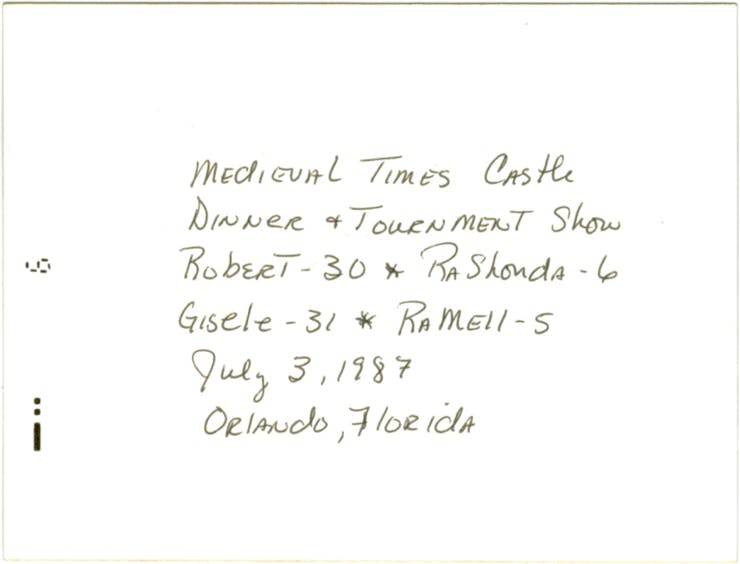 Medieval Times Castle
Dinner & Tournment Show
Robert - 30 * RaShonda - 6
Gisele - 31 * RaMell - 5
July 3, 1987
Orlando, Florida